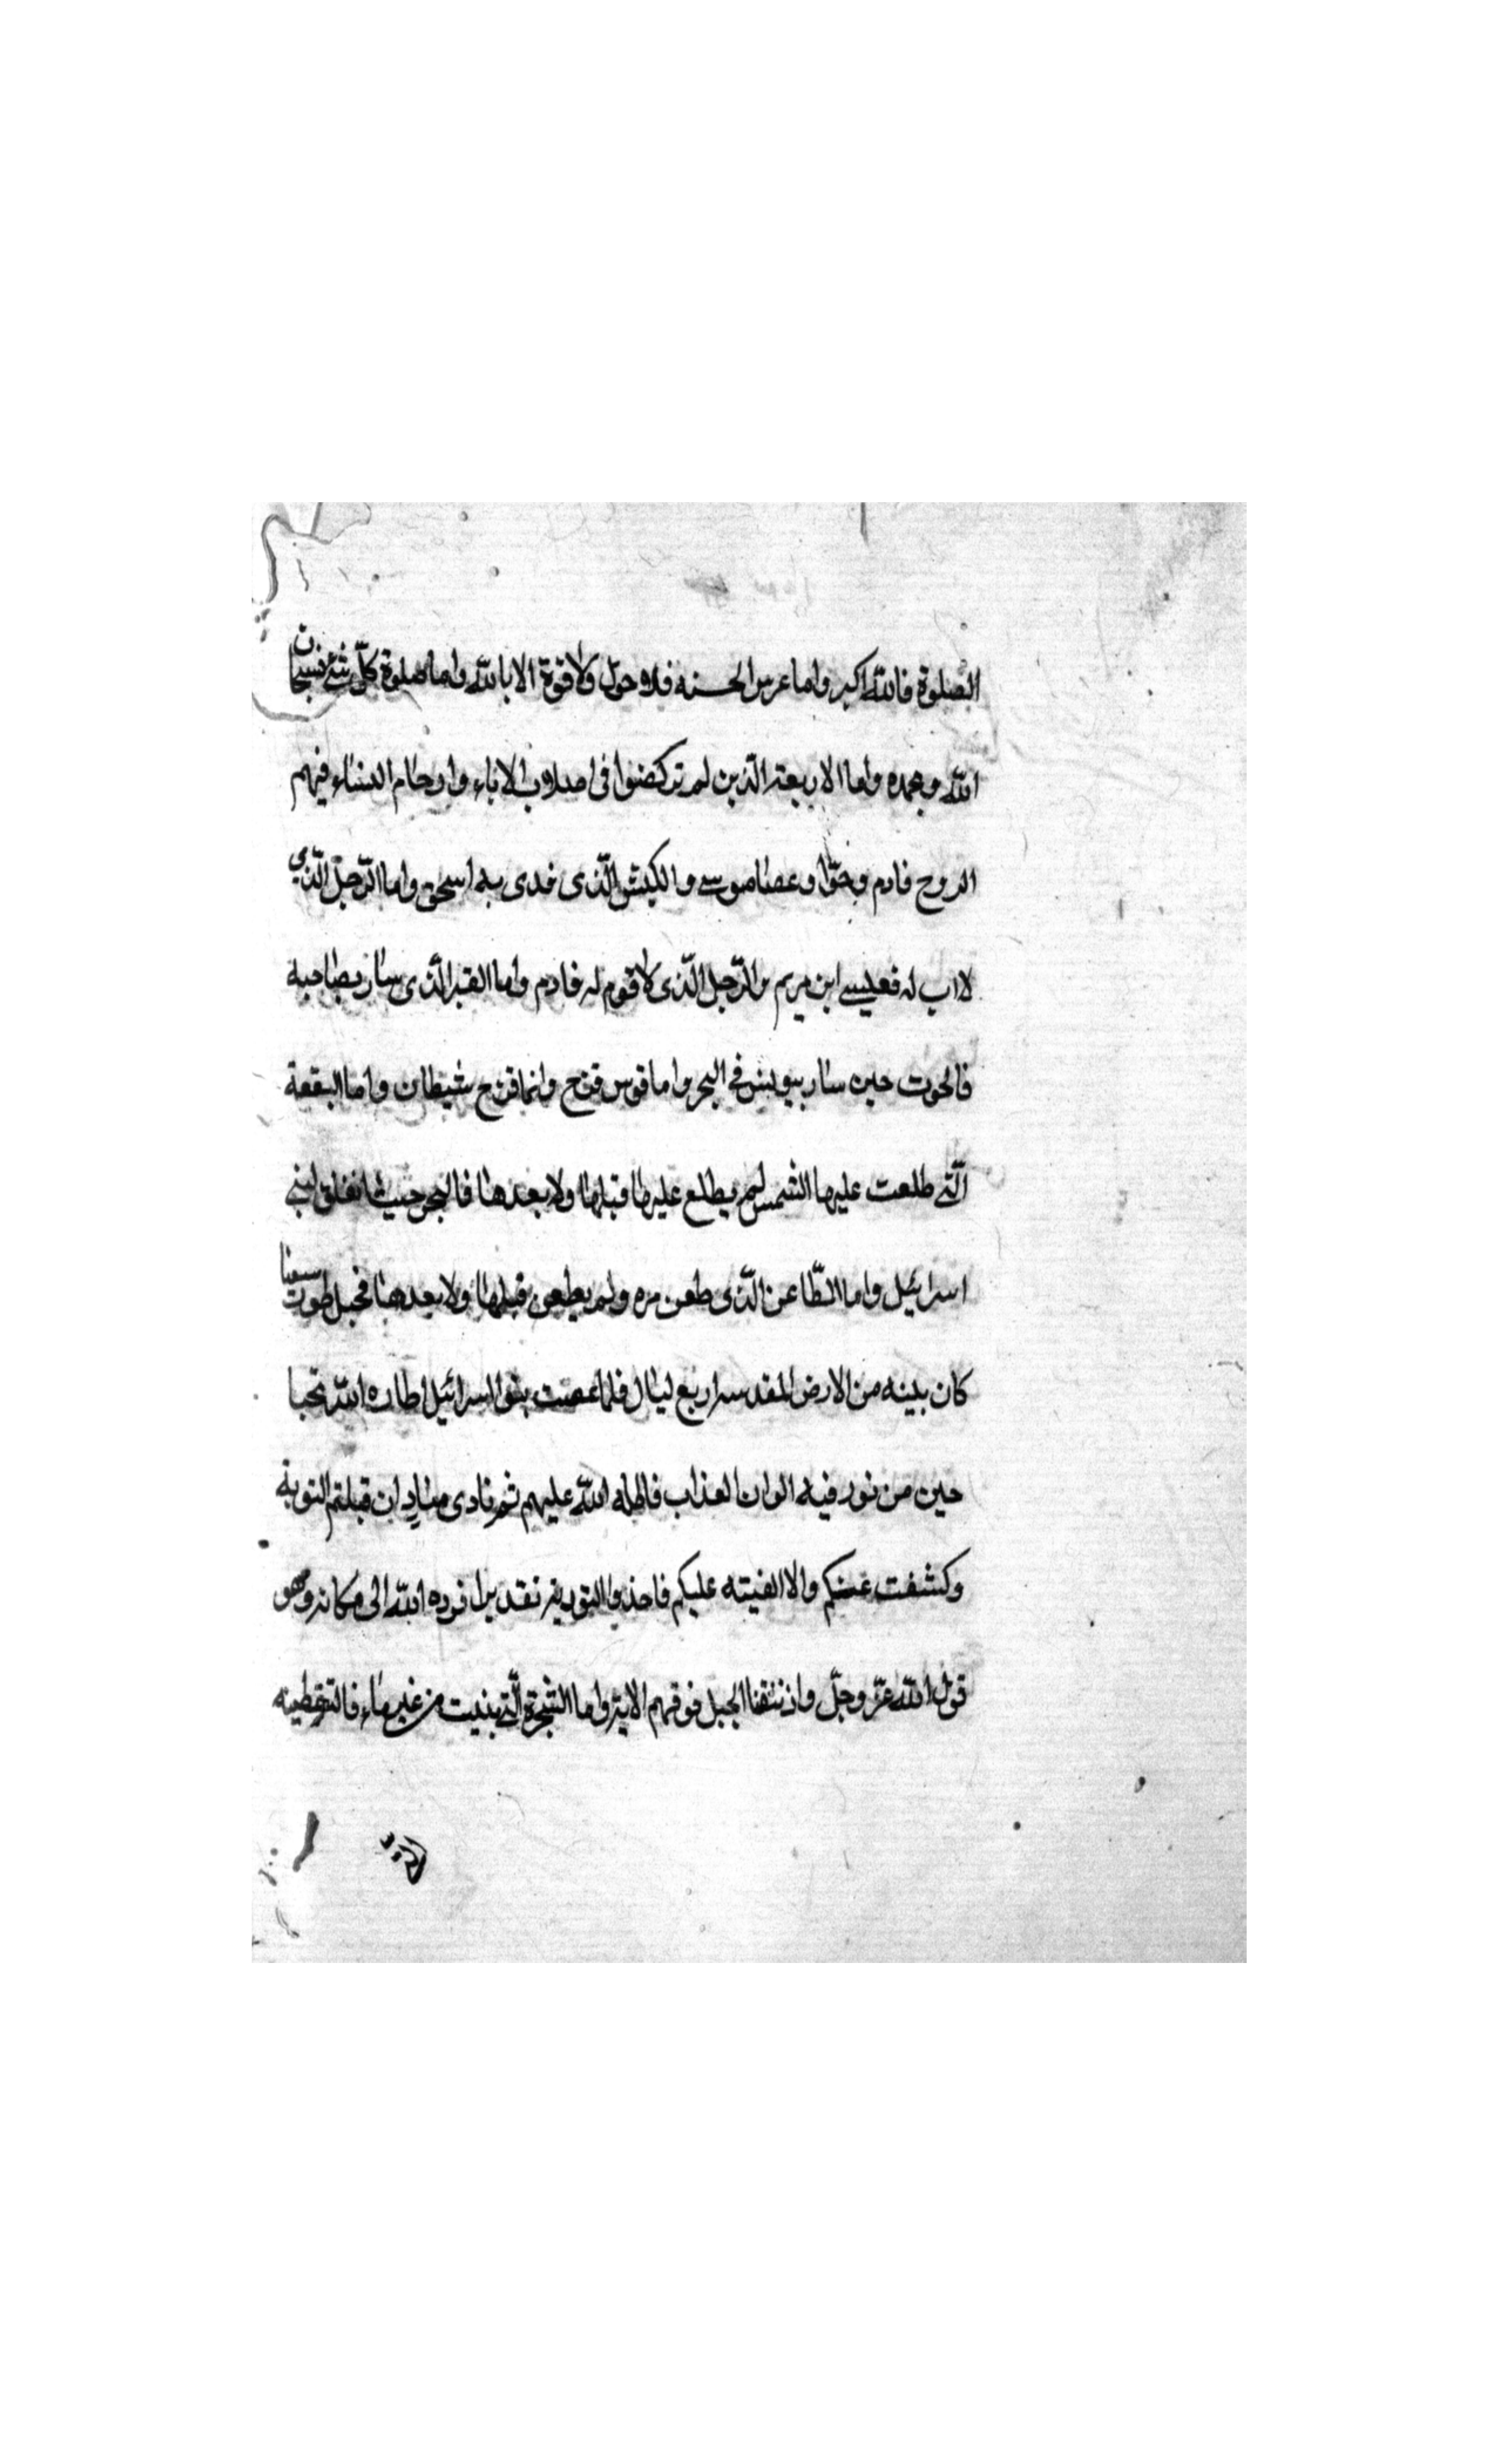 الصلوة فالله اكبر واما غرس الحسنه فلا حول ولا قوة الا بالله واما صلوة كلّ شئ فسبحان
الله وبحمده واما الاربعة الّذين لم تركضوا فى اصلاب الاباء وارحام النساء فيهم
الروح فادم وحوّا وعصا موسى والكبش الّذى فدى به اسحق واما الرّجل الّذي
لا اب له فعيسى ابن مريم والرّجل الّذى لا قوم له فادم واما القبر الّذى سار بصاحبه
فالحوت حين سار بيونس فى البحر واما قوس قزح وانما قزح شيطان واما البقعة
الّتى طلعت عليها الشمس لم يطلع عليها قبلها ولا بعدها فالبحر حيث انفلق لبنى
اسرائيل واما الظّاعن الّذى ظعن مره ولم يظعن قبلها ولا بعدها فجبل طور سينا
كان بينه من الارض المقدسه اربع ليال فلما عصت بنوا اسرائيل اطاره الله تحبا
حين من نور فيه الوان العذاب فاظله الله عليهم ثم نادى مناد ان قبلتم التوبة
وكشفت عنكم والا القيته عليكم فاخذوا التورية تقديرا فرده الله الى مكانه وهو
قول الله عزّ وجلّ واذ نتقنا الجبل فوقهم الاية واما الشجرة الّتى نبتت من غير ماء فاليقطينه